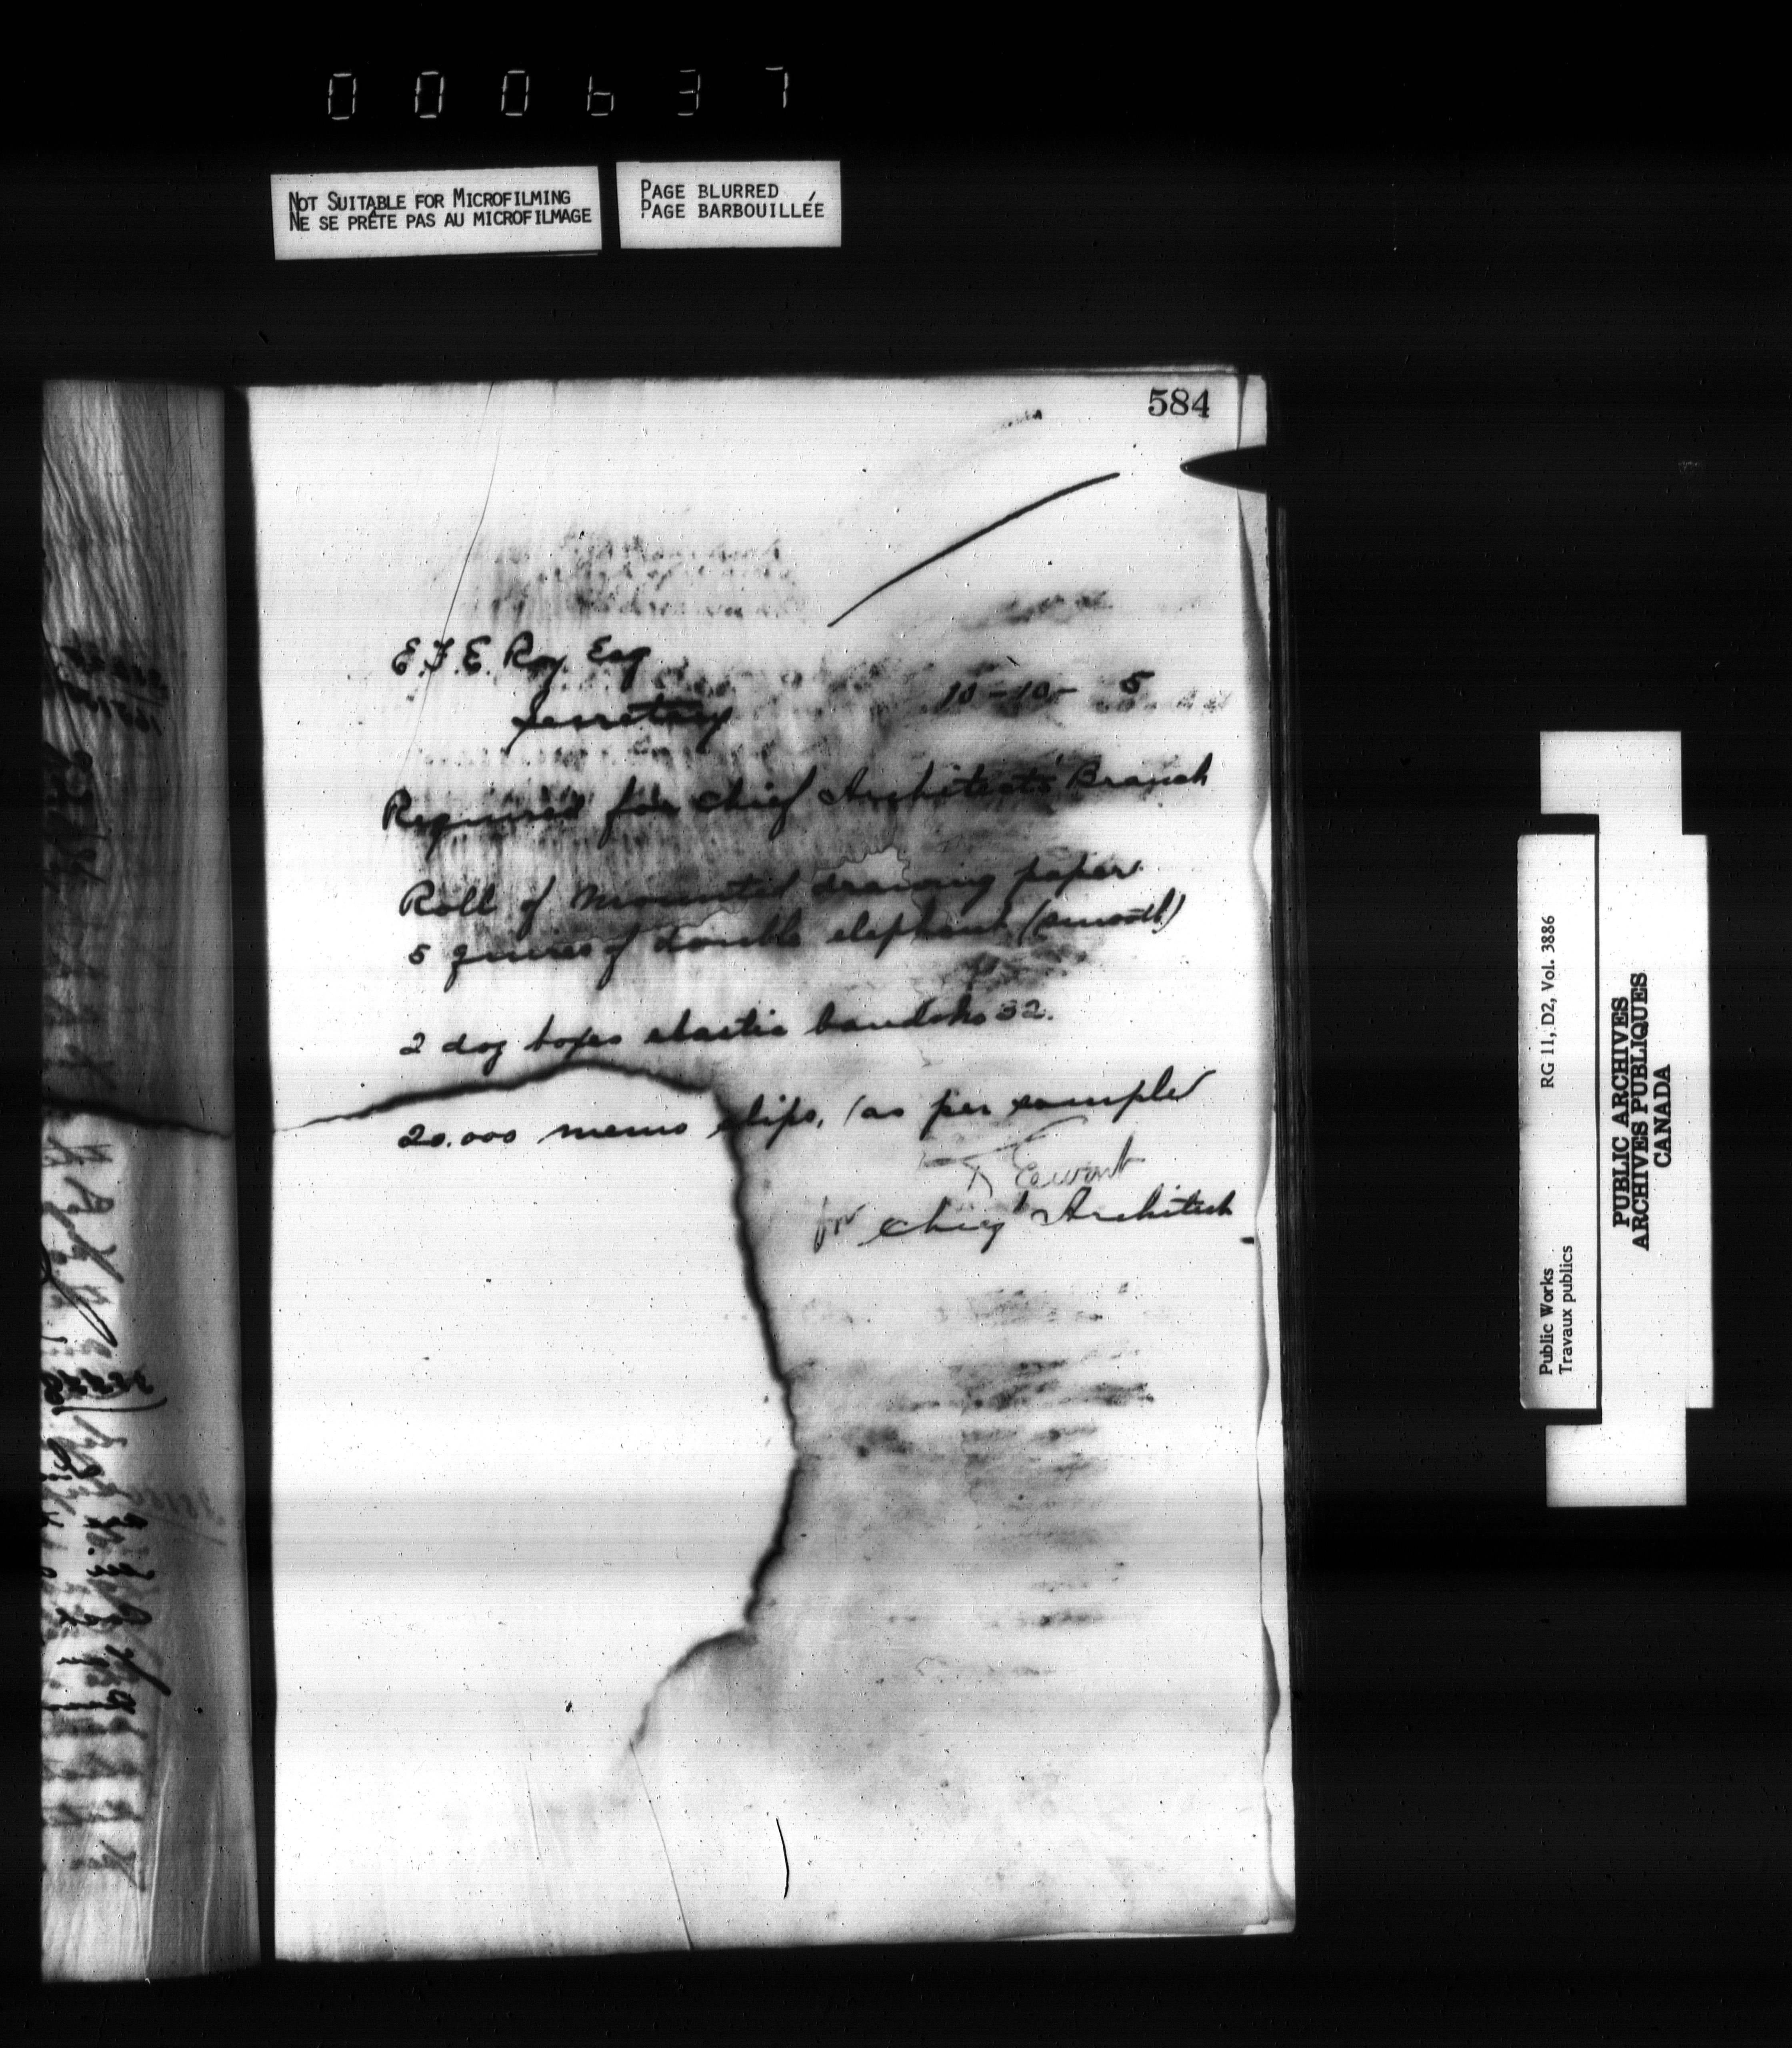 000637
NOT SUITABLE FOR MICROFILMING
NE SE PRÊTE PAS AU MICROFILMAGE
PAGE BLURRED
PAGE BARBOUILLÉE
584
E.F.E. Roy. Esq
Secretary
10-10- 5
Required for Chief Architect's Branch
Roll of mounted drawing paper
5 quires of double elephant (smooth)
2 doz boxes elastic bands No 32.
20.000 memo slips, (as per sample
Ewart
for Chief Architect
RG 11, D2, Vol. 3886
Public Works
Travaux publics
PUBLIC ARCHIVES
ARCHIVES PUBLIQUES
CANADA